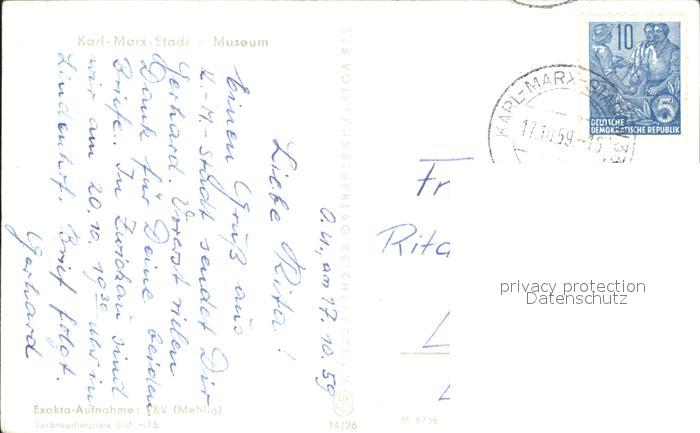 Karl-Marx-Stadt - Museum
O.U., am 17.10.59
Liebe Rita!
Einen Gruß aus
K.-M.-Stadt sendet Dir
Gerhard. Vorerst vielen
Dank für Deine beiden
Briefe. In Zwickau sind
wir am 20.10. 19³⁰ Uhr in
Lindenhof. Brief folgt.
Gerhard
Exakta-Aufnahme: VKV (Mehlig)
Verbraucherpreis DM -.15
14/26
M 8758
VEB VOLKSKUNSTVERLAG REICHENBACH
Fr
Rita
L
KARL-MARX-STADT
17.10.59
10
5
DEUTSCHE
DEMOKRATISCHE REPUBLIK
privacy protection
Datenschutz